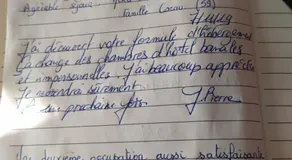 Agréable séjour
famille (59)
J'ai découvert votre formule d'hébergement
ça change des chambres d'hôtel banales
et impersonnelles. J'ai beaucoup apprécié
Je reviendrai sûrement
une prochaine fois J. Pierre
deuxième occupation aussi satisfaisante